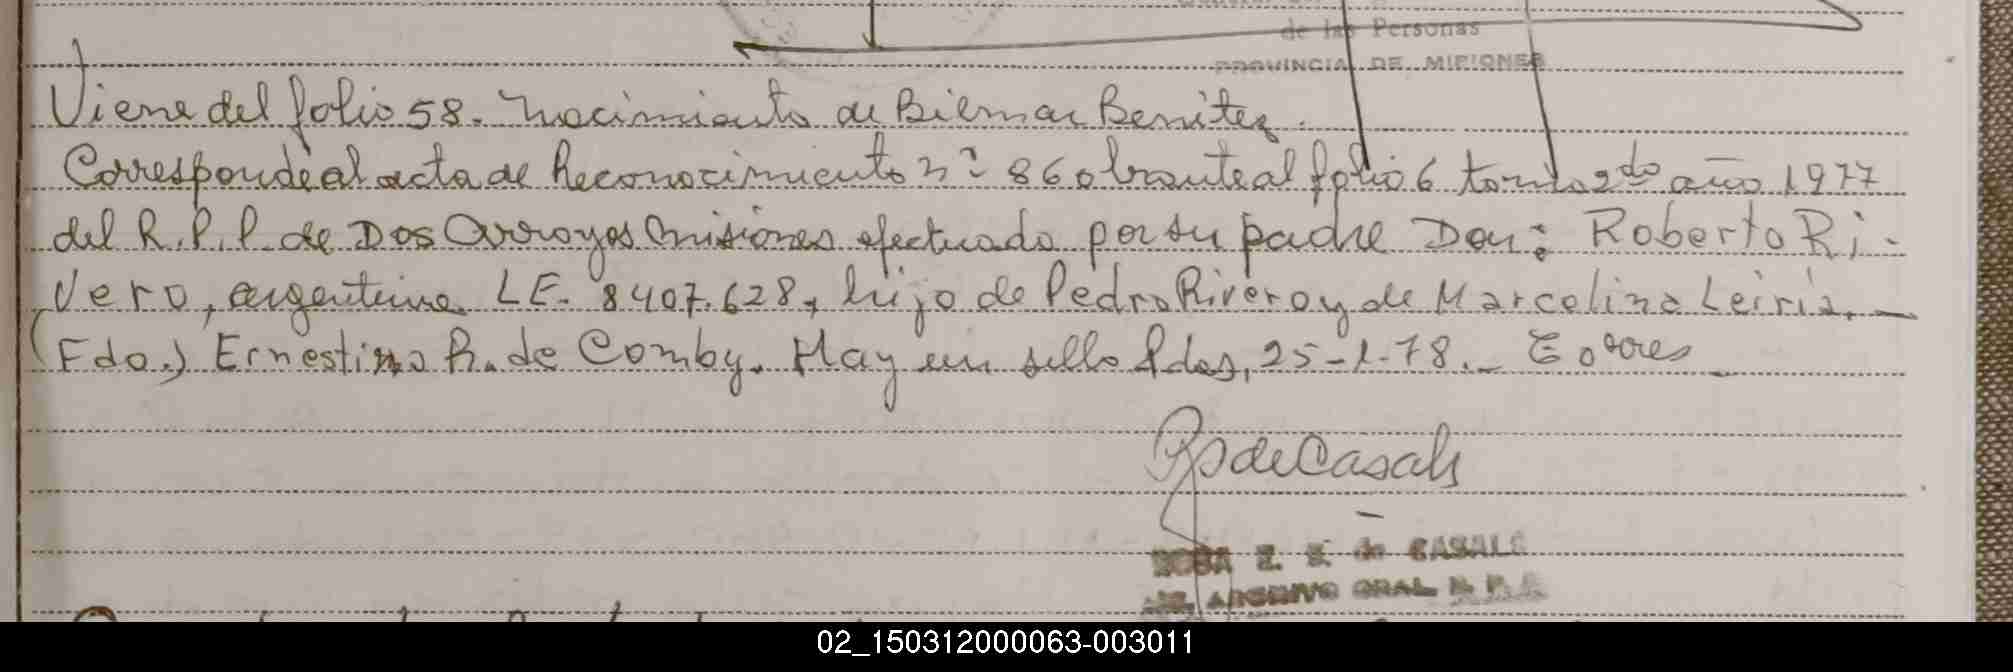 de las Personas
PROVINCIA DE MISIONES
Viene del folio 58. Nacimiento de Bilmar Benitez.
Corresponde al acta de Reconocimiento nº 86 obrante al folio 6 tomo 2do año 1977
del R.P.P. de Dos Arroyos Misiones efectuado por su padre Don: Roberto Ri-
vero, argentino LE. 8407.628, hijo de Pedro Rivero y de Marcelina Leiria.-
(Fdo.) Ernestina R. de Comby. Hay un sello Pdas, 25-1-78.-
de Casals
ROSA E. S. de CASALS
ARCHIVO GRAL. R. P.
02_150312000063-003011